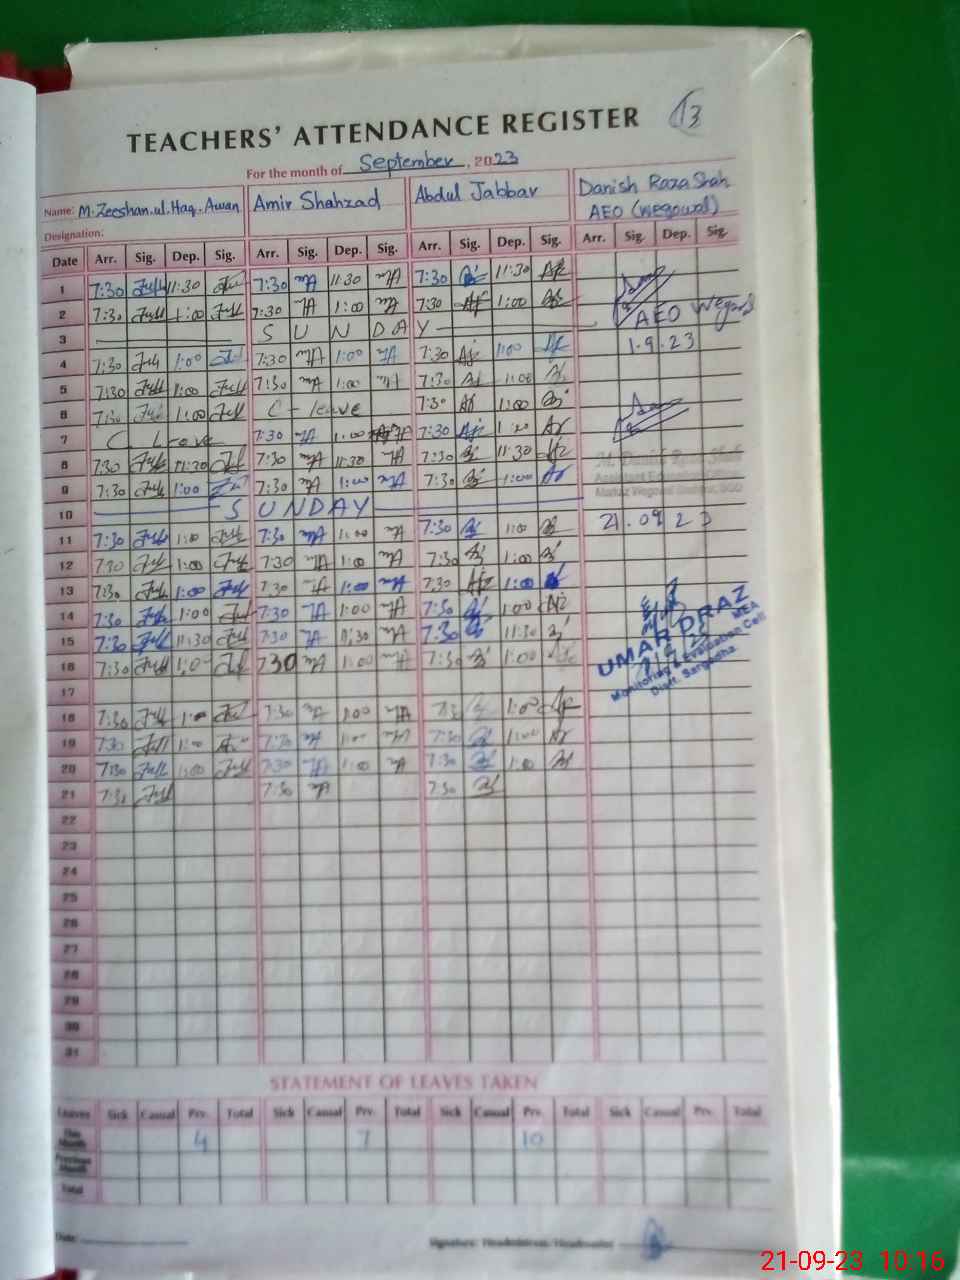 TEACHERS' ATTENDANCE REGISTER 13
For the month of September, 2023
Name: M. Zeeshan.ul.Haq.Awan Amir Shahzad Abdul Jabbar Danish Raza Shah
AEO (wegowal)
Designation:
Date Arr. Sig. Dep. Sig. Arr. Sig. Dep. Sig. Arr. Sig. Dep. Sig. Arr. Sig. Dep. Sig.
1 7:30 11:30 7:30 11:30 7:30 11:30
2 7:30 1:00 7:30 1:00 7:30 1:00 AEO
3 SUNDAY
4 7:30 1:00 7:30 1:00 7:30 1:00 1.9.23
5 7:30 1:00 7:30 1:00 7:30 1:00
6 7:30 1:00 C-leave 7:30 1:00
7 C Leave 7:30 1:00 7:30 1:00
8 7:30 11:30 7:30 11:30 7:30 11:30
9 7:30 1:00 7:30 1:00 7:30 1:00
10 SUNDAY
11 7:30 1:00 7:30 1:00 7:30 1:00 21.09 23
12 7:30 1:00 7:30 1:00 7:30 1:00
13 7:30 1:00 7:30 1:00 7:30 1:00
14 7:30 1:00 7:30 1:00 7:30 1:00
15 7:30 11:30 7:30 11:30 7:30 11:30
UMAR DRAZ
MEA
Monitoring & Evaluation Cell
Distt. Sargodha
16 7:30 1:00 7:30 1:00 7:30 1:00
17
18 7:30 1:00 7:30 1:00 7:30 1:00
19 7:30 1:00 7:30 1:00 7:30 1:00
20 7:30 1:00 7:30 1:00 7:30 1:00
21 7:30 7:30 7:30
22
23
24
25
26
27
28
29
30
31
STATEMENT OF LEAVES TAKEN
Leaves Sick Casual Prv. Total Sick Casual Prv. Total Sick Casual Prv. Total Sick Casual Prv. Total
This Month 4 7 10
Previous Month
Total
Date: Signature: Headmistress/Headmaster
21-09-23 10:16